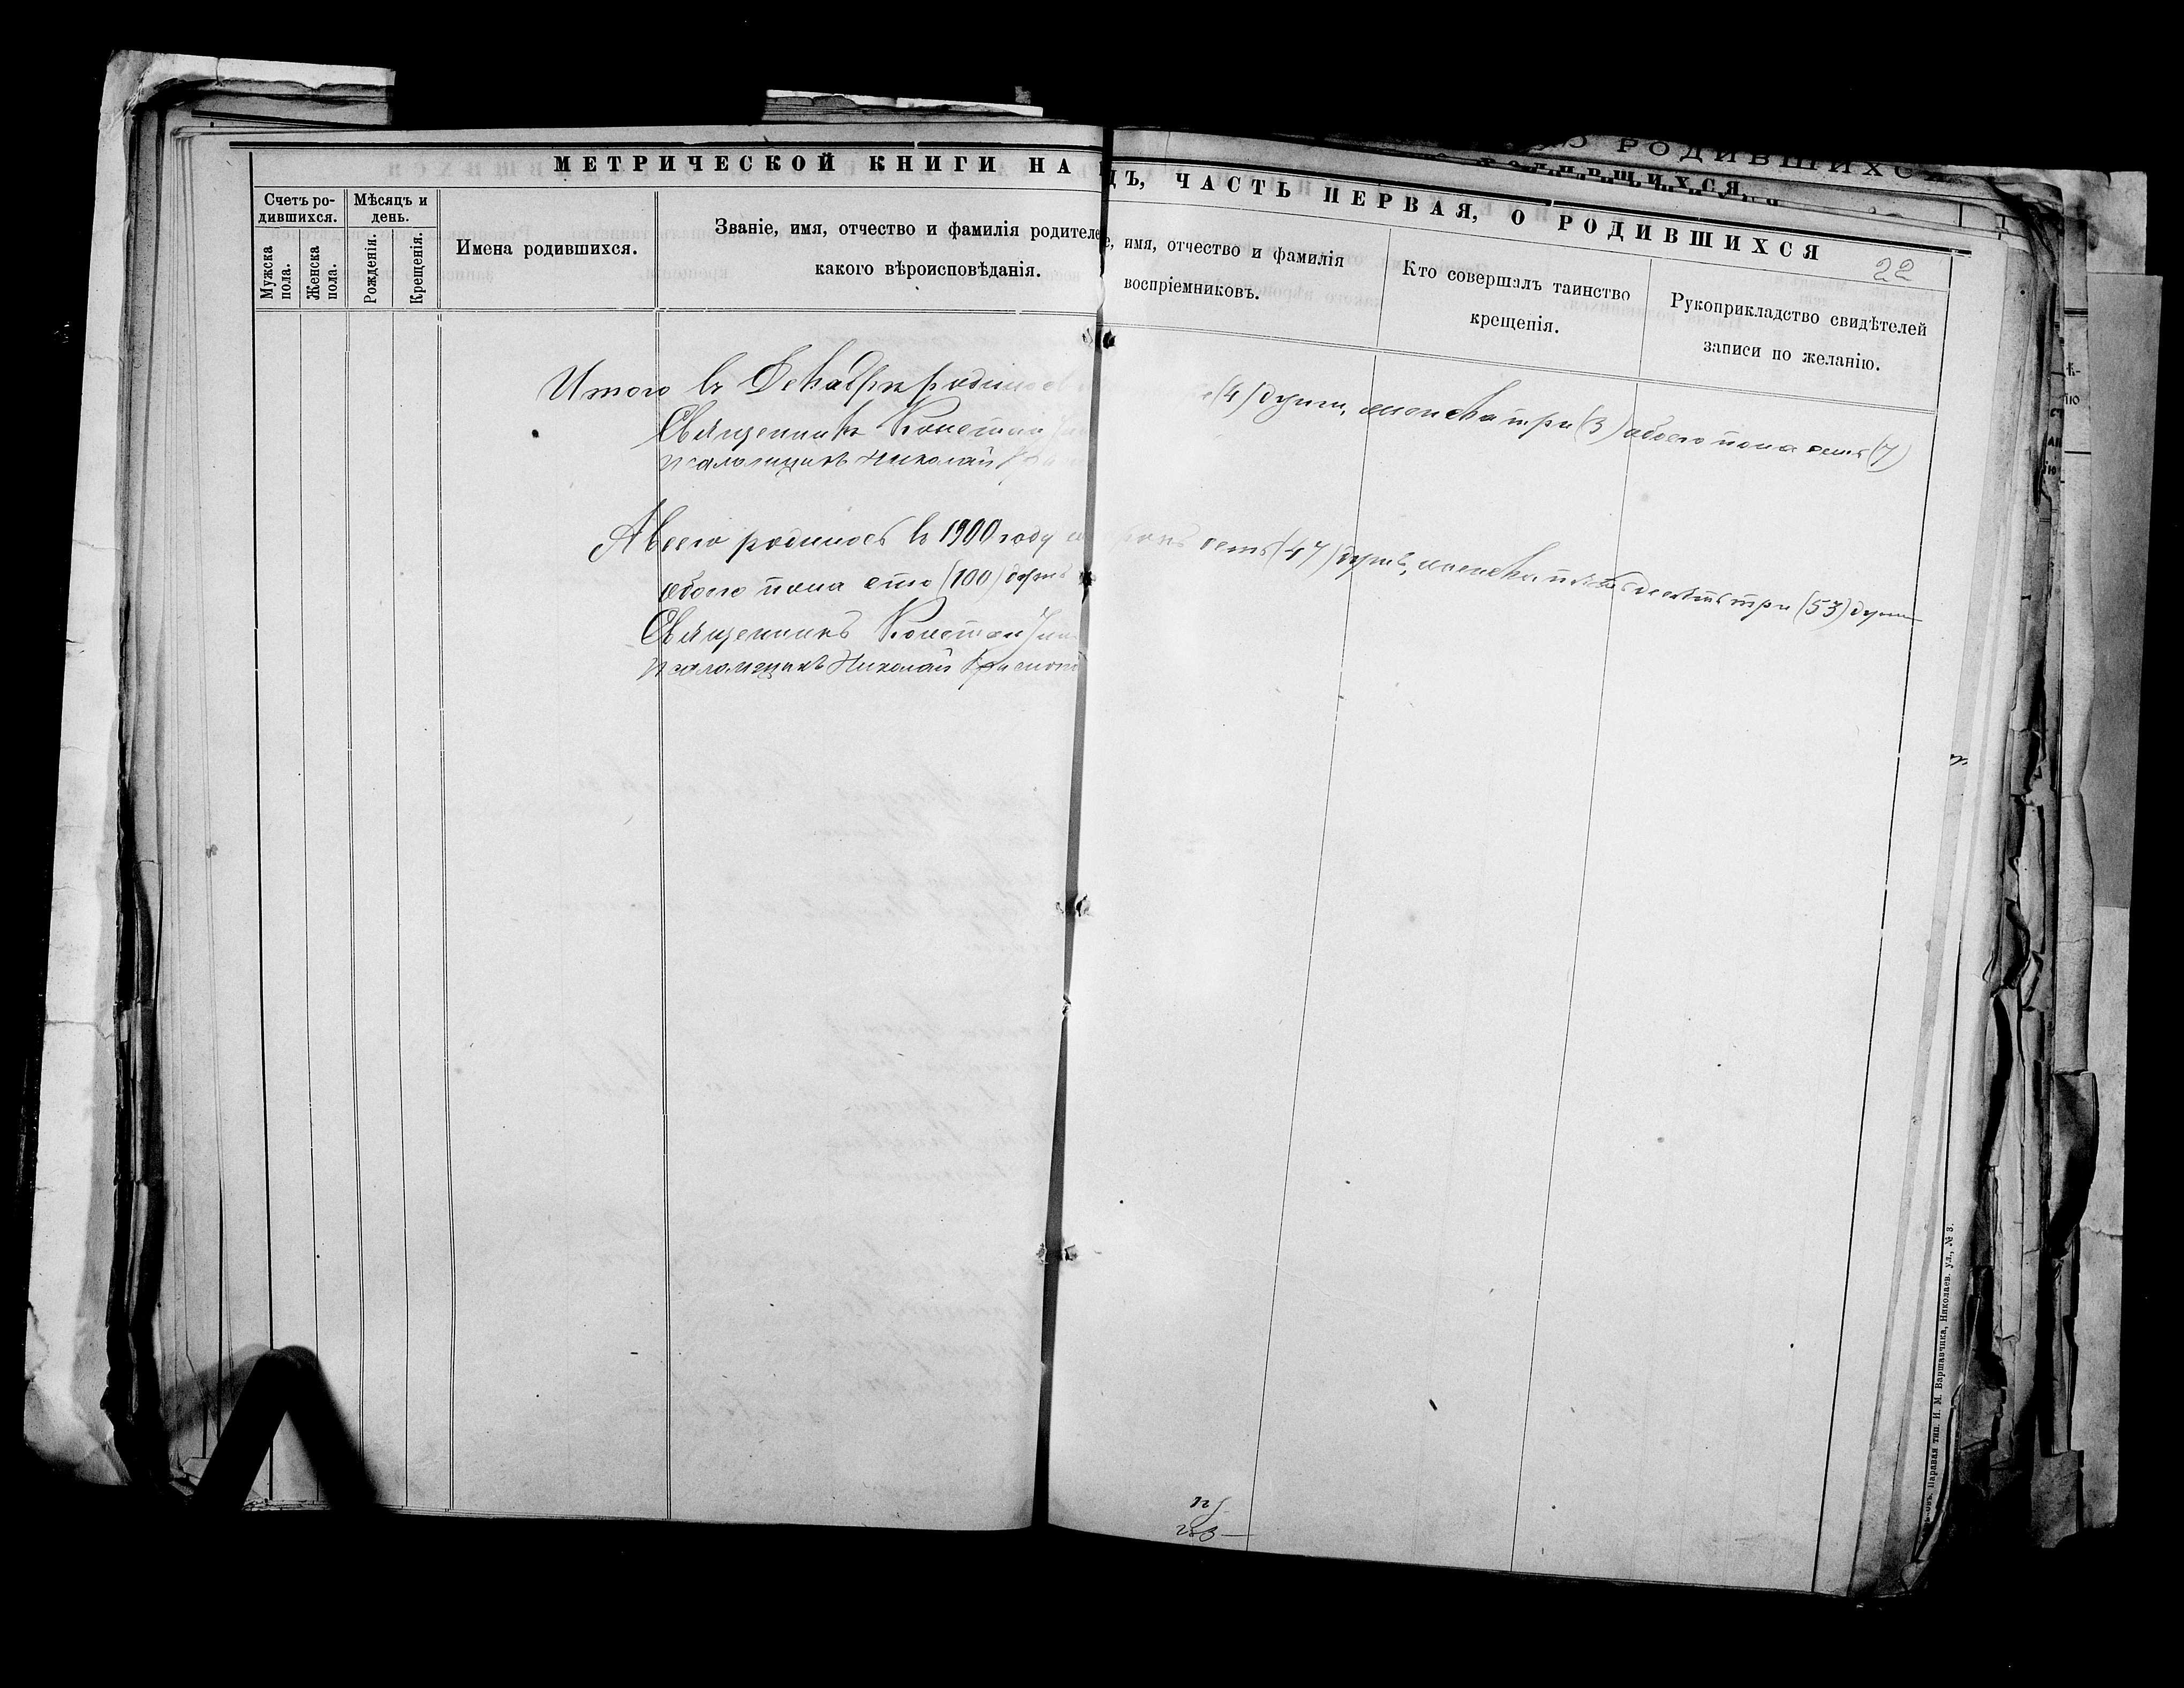 МЕТРИЧЕСКОЙ КНИГИ НА ДЪ, ЧАСТЬ ПЕРВАЯ, О РОДИВШИХСЯ
22
Счетъ ро-
дившихся.
Мужска
пола.
Женска
пола.
Мѣсяцъ и
день.
Рожденія.
Крещенія.
Имена родившихся.
Званіе, имя, отчество и фамилія родителе
какого вѣроисповѣданія.
е, имя, отчество и фамилія
воспріемниковъ.
Кто совершалъ таинство
крещенія.
Рукоприкладство свидѣтелей
записи по желанію.
Итого въ Декабрѣ родилось (4) души, женска три (3) обоего пола семь (7)
Священникъ Констан
Псаломщикъ Николай
А всего родилось въ 1900 году семь (47) душъ, женска пятьдесятъ три (53) души
обоего пола сто (100) душъ
Священникъ Констан
Псаломщикъ Николай
Паравая тип. И. М. Варшавчика, Николаев. ул., № 3.
О РОДИВШИХСЯ